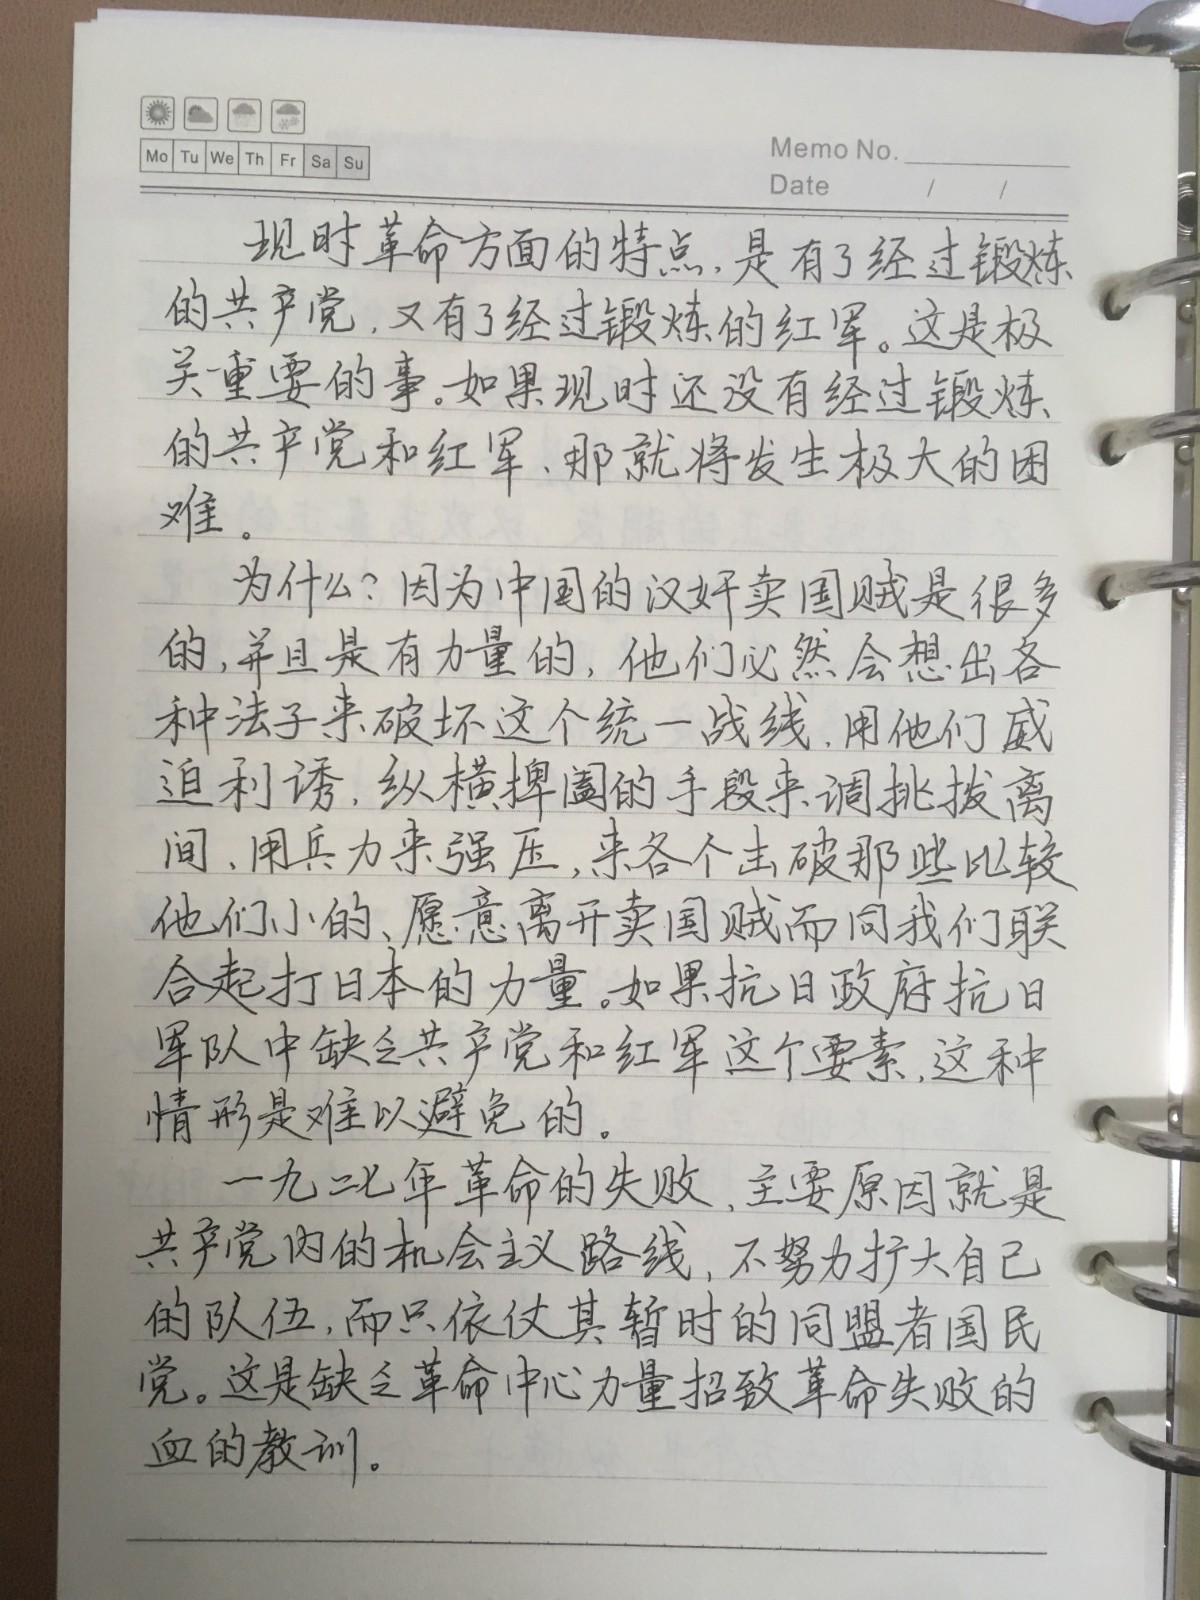 Mo Tu We Th Fr Sa Su
Memo No.
Date / /
现时革命方面的特点,是有了经过锻炼
的共产党,又有了经过锻炼的红军。这是极
关重要的事。如果现时还没有经过锻炼
的共产党和红军、那就将发生极大的困
难。
为什么?因为中国的汉奸卖国贼是很多
的,并且是有力量的,他们必然会想出各
种法子来破坏这个统一战线,用他们威
迫利诱,纵横捭阖的手段来调挑拨离
间、用兵力来强压,来各个击破那些比较
他们小的、愿意离开卖国贼而同我们联
合起打日本的力量。如果抗日政府抗日
军队中缺乏共产党和红军这个要素,这种
情形是难以避免的。
一九二七年革命的失败,主要原因就是
共产党内的机会主义路线,不努力扩大自己
的队伍,而只依仗其暂时的同盟者国民
党。这是缺乏革命中心力量招致革命失败的
血的教训。